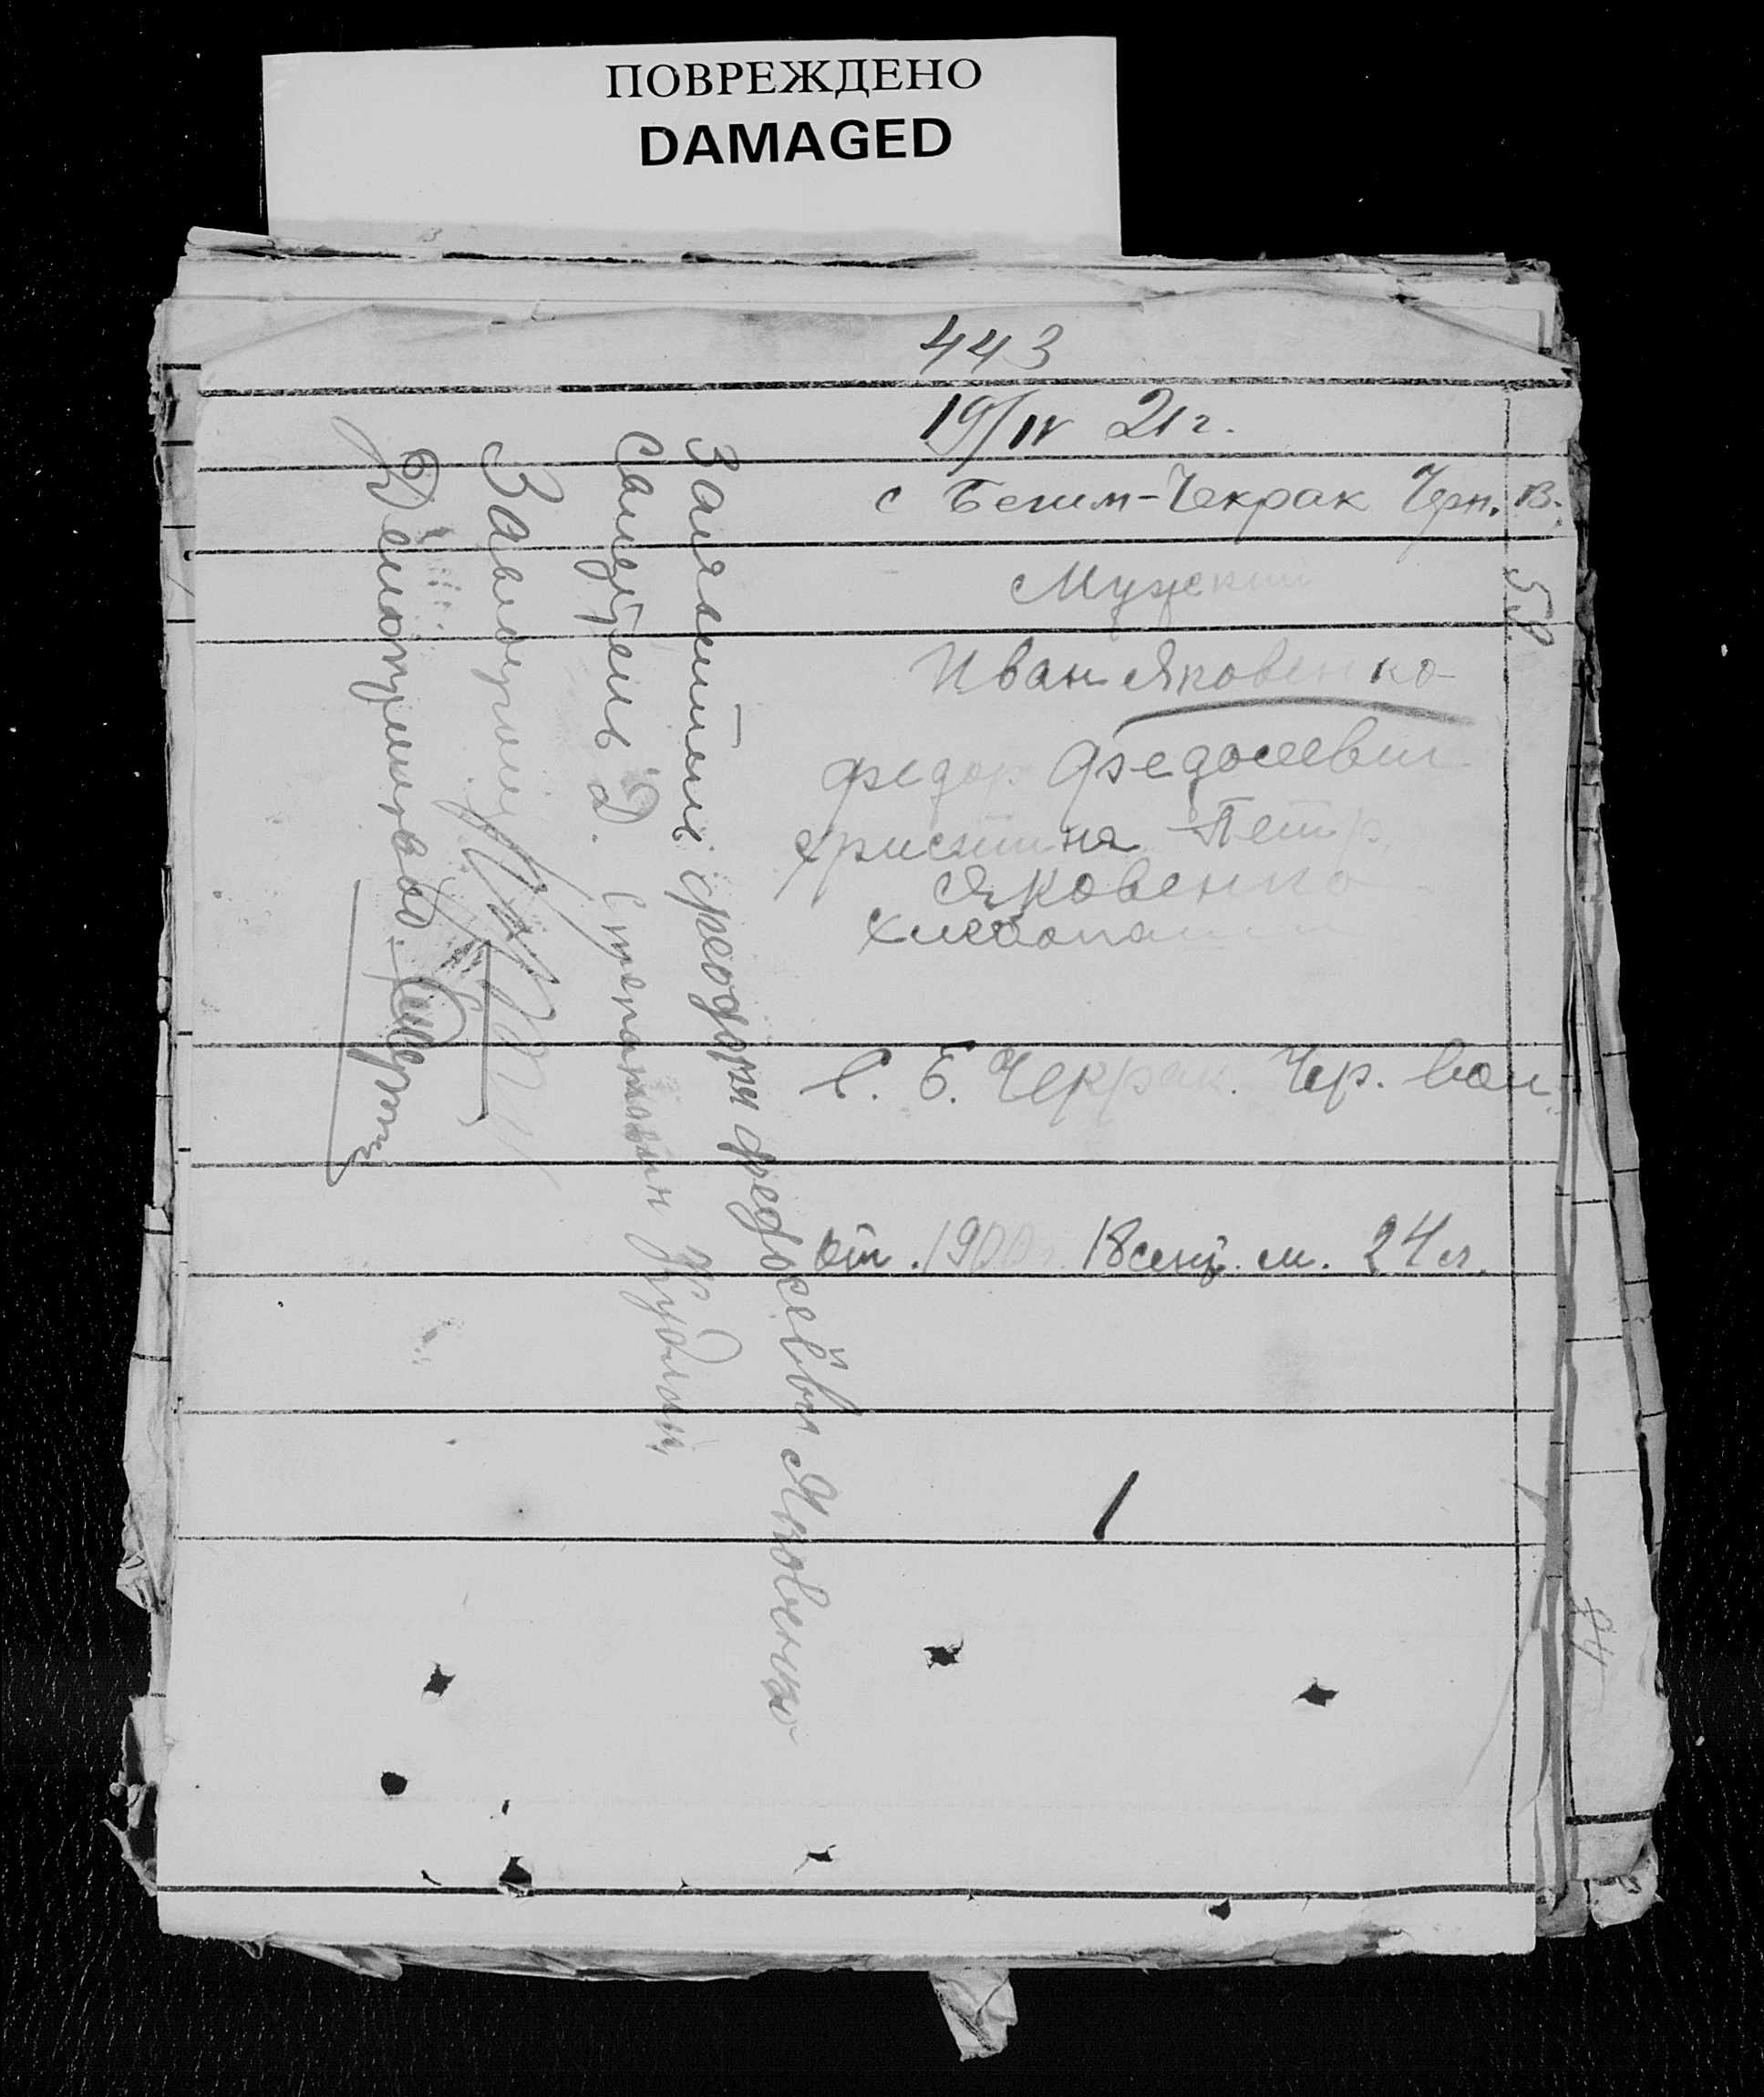 ПОВРЕЖДЕНО
DAMAGED
443
19/IV 21 г.
с Бегим-Чекрак Черн. в.
58
Мужской
Иван Яковенко
Федор Федосеевич
Христина Петр.
Яковенко
Хлебопаш
С. Б. Чекрак. Чер. вол.
от 1900 г. 18 сент. м. 24 л.
1
Заявитель Феодор Федосеевич Яковенко
Свидетель Д.
Завподотд
Делопроизвод.